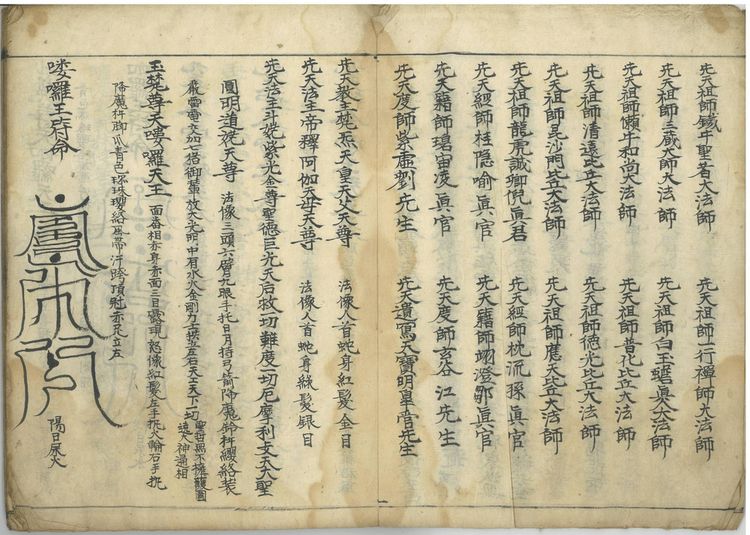 先天祖師鐵牛聖者大法師　先天祖師一行禪師大法師
先天祖師三藏大師大法師　先天祖師白玉蟾真人大法師
先天祖師懶牛和尚大法師　先天祖師普化比丘大法師
先天祖師清遠比丘大法師　先天祖師德光比丘大法師
先天祖師毘沙門比丘大法師　先天祖師應天比丘大法師
先天祖師龍虎誠卿倪真君　先天經師枕流孫真官
先天經師桂隱喻真官　先天籍師翊澄鄒真官
先天籍師碧宙凌真官　先天度師玄谷江先生
先天度師紫虛劉先生　先天遺寫太寶明皇音先生
先天教主梵炁天皇天父天尊　法像人首蛇身紅髮金目
先天法主帝釋阿伽天母天尊　法像人首蛇身綠髮銀目
先天法主斗姥紫光金尊聖德巨光天后救一切難度一切厄摩利支天大聖
圓明道姥天尊　法像三頭六臂九眼手托日月持弓箭降魔鈴杵纓絡裝
嚴雷電交加七猪御輦放大光明中有水火金剛力士擁左右天上天下一切聖哲無不擁護圓遶大神通相
玉梵尊天嘍囉天王　面番相赤身赤面三目露頂怒像紅髮左手托火輪右手托
降魔杵脚爪青色珠瓔絡為帶汗跨項赤足立左
嘍囉王符命
陽日屎火